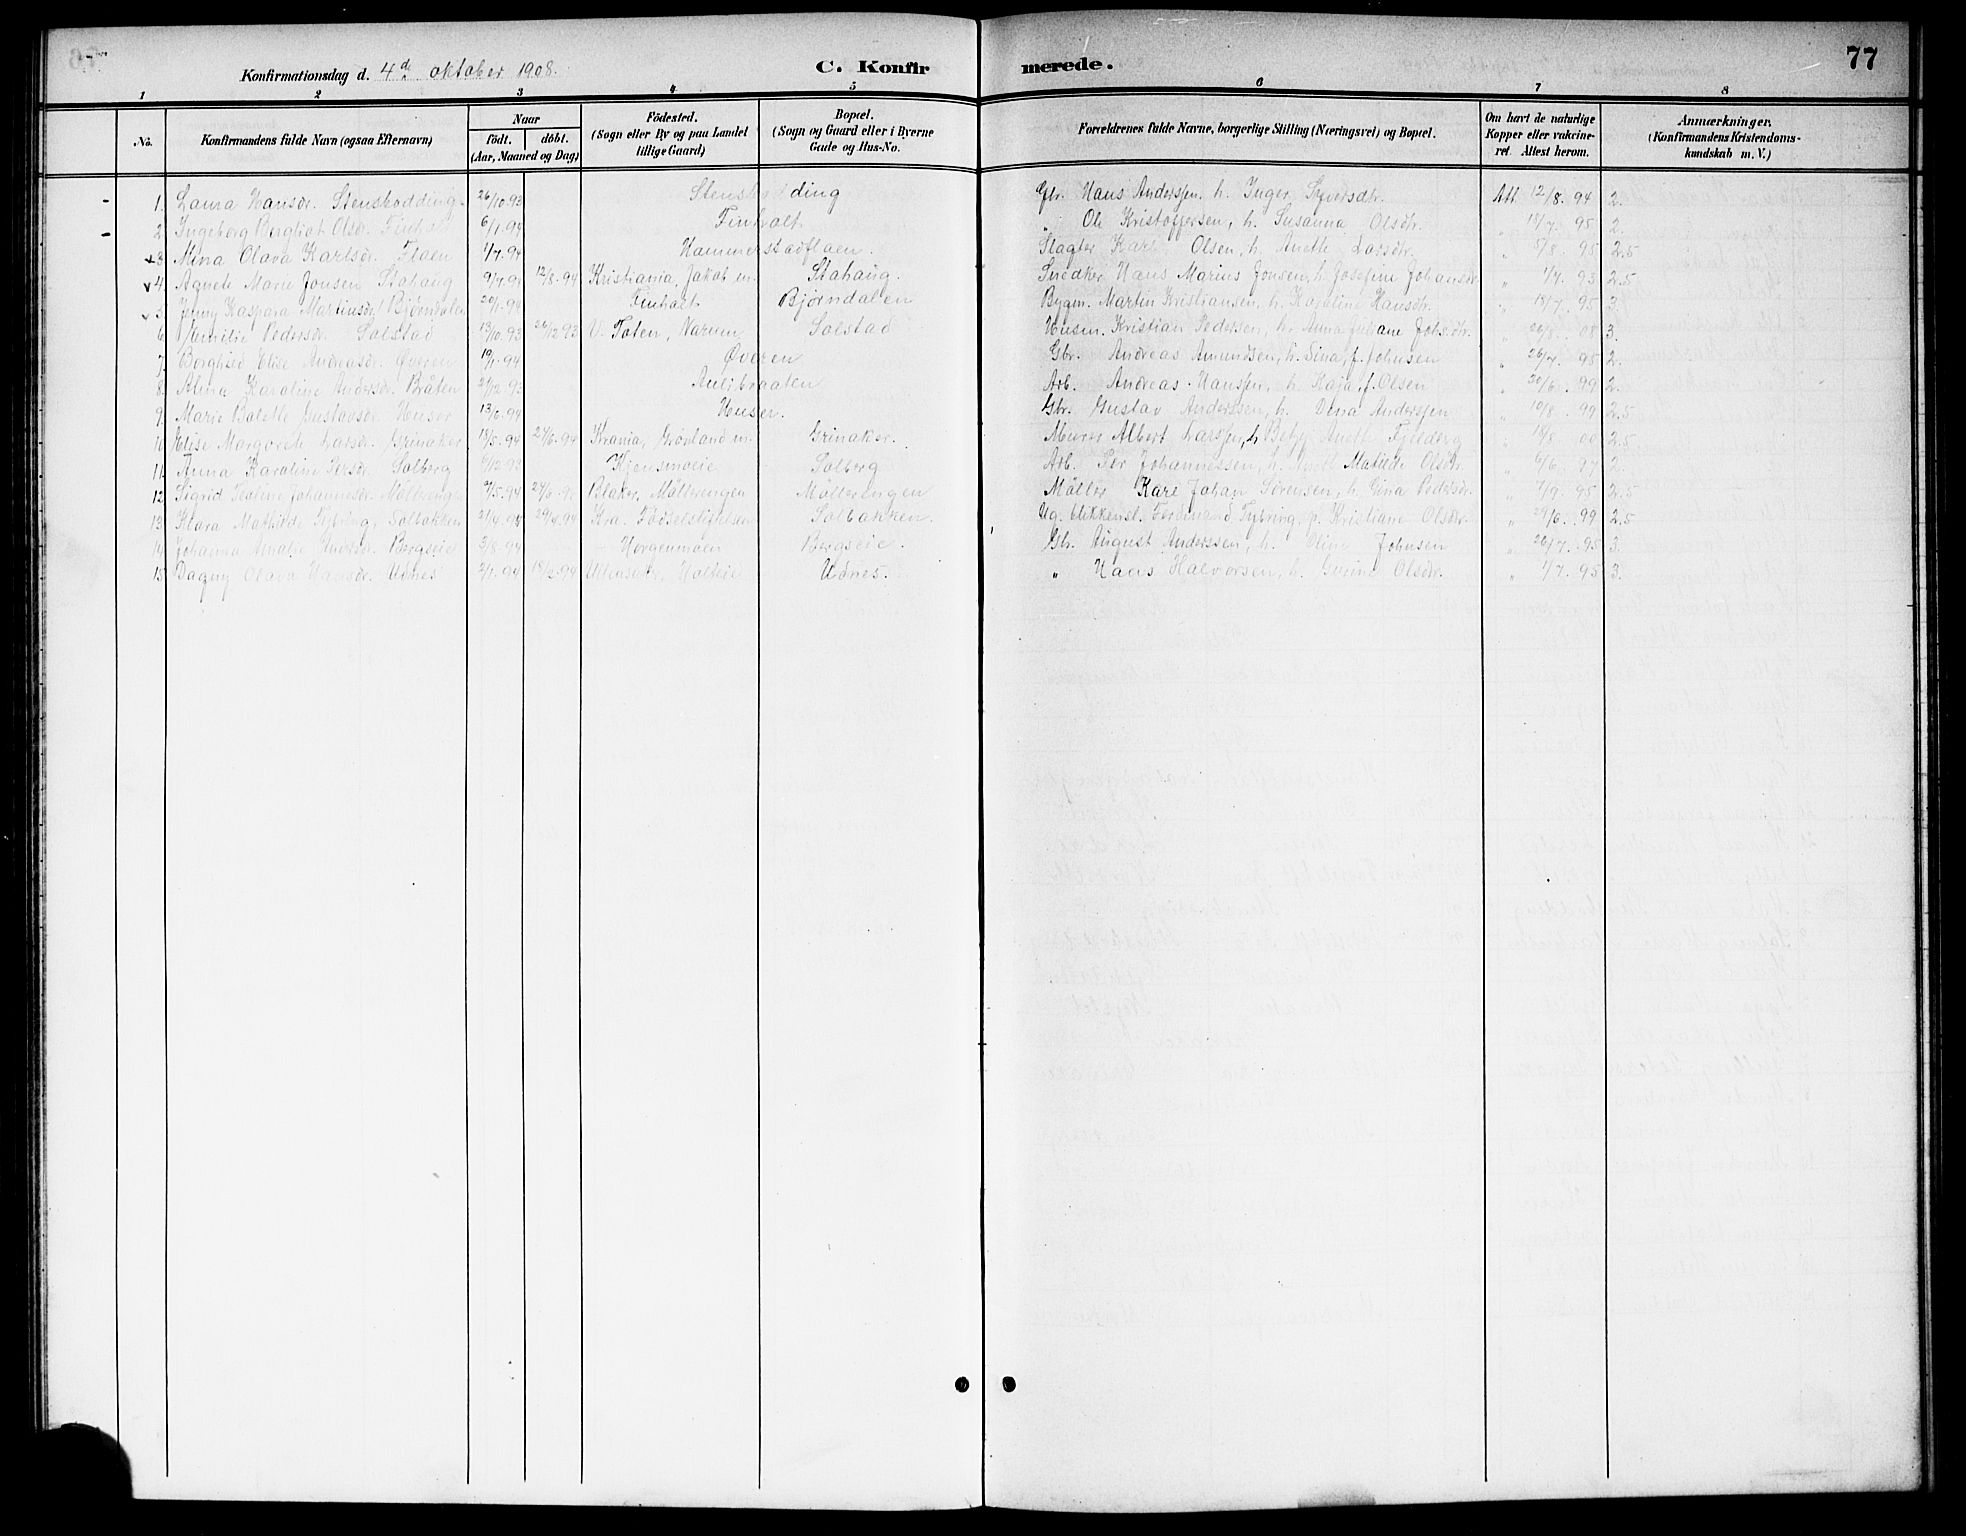 Konfirmationsdag d. 4de oktober 1908.
C. Konfirmerede.
77
1 2 3 4 5 6 7 8
No.
Konfirmandens fulde Navn (ogsaa Efternavn)
Naar
födt. döbt.
(Aar, Maaned og Dag)
Födested.
(Sogn eller By og paa Landet
tillige Gaard)
Bopæl.
(Sogn og Gaard eller i Byerne
Gade og Hus-No.
Forældrenes fulde Navne, borgerlige Stilling (Næringsvei) og Bopæl.
Om havt de naturlige
Kopper eller vakcine-
ret. Attest herom.
Anmærkninger.
(Konfirmandens Kristendoms-
kundskab m. V.)
1. Laura Hansdr. Stenskodding 26/10.93 Stenskodding Gbr. Hans Anderssen, h. Inger Syversdtr. Att. 12/8. 94 2.
2. Ingeborg Bergliot Olsdr. Finholt 6/1.94 Finholt " Ole Kristoffersen, h. Susanna Olsdtr. " 18/7. 95 2.
3. Mina Olava Karlsdr. Flaen 1/7.94 Hammerstadflaen. Slagter Karl Olsen, h. Anette Larsdtr. " 5/8. 95 2.5
4. Agnete Marie Jonsen Stahaug 9/7.94 12/8.94 Kristiania, Jakob m. Stahaug. Snedker Hans Marius Jonsen, h. Josefine Johansdr. " 1/7. 93 2.5
5. Jenny Kaspara Martinsdr. Björndalen 20/1.94 Finholt Björndalen Bygm. Martin Kristiansen, h. Karoline Hansdr. " 18/7. 95 3.
6. Emilie Pedersdr. Solstad 13/10.93 26/12.93 V. Toten, Narum Solstad Husm. Kristian Pedersen, h. Anna Juliane Johsdtr. 08 3.
7. Borghild Elise Andreasdr. Øveren 19/1.94 Øveren Gbr. Andreas Amundsen, h. Sina, f. Johnsen " 26/7. 95 2.
8. Anna Karoline Andersdr. Bråten 21/12.93 Aulibraaten Arb. Andreas Hanssen, h. Kaja, f. Olsen " 30/6. 99 2.
9. Marie Bolette Gustavsdr. Huser 13/6.94 Huser. Gbr. Gustav Anderssen, h. Dina Anderssen " 10/8. 99 2.5
10. Elise Margrete Larsdr. Grinaker 18/5.94 24/6.94 Krania, Grønland m. Grinaker. Murer Albert Larssen, h. Betzy Anette Fjeldberg " 18/8 00 2.5
11. Anna Karoline Persdr. Solberg 6/12.93 Kjensmoeie Solberg Arb. Per Johannessen, h. Matilde Olsdtr " 6/6. 97 2.
12. Sigrid Johannesdr. Möllerengen 7/5.94 24/6.94 Blaker, Möllerengen Möllerengen Möller Karl Johan Sörensen, h. Gina Pedersdr. " 7/9. 95 2.5
13. Klara Mathilde Tybring, Solbakken 21/4.94 29/4.94 Kra. Födselstiftelsen Solbakken. Ug. Ferdinand Tybring, p. Kristiane Olsdtr. " 24/6. 99 2.5
14. Johanna Amalie Andersdr. Bergseie 3/8.94 Horgenmoen Bergseie. Gbr. August Anderssen, h. Oline Johnsen " 26/7. 95 3.
15. Dagny Olava Hansdr. Udnes 2/1.94 Ullensaker, Holteie Udnes. " Hans Halvorsen, h. Gurine Olsdtr. " 1/7. 95 3.